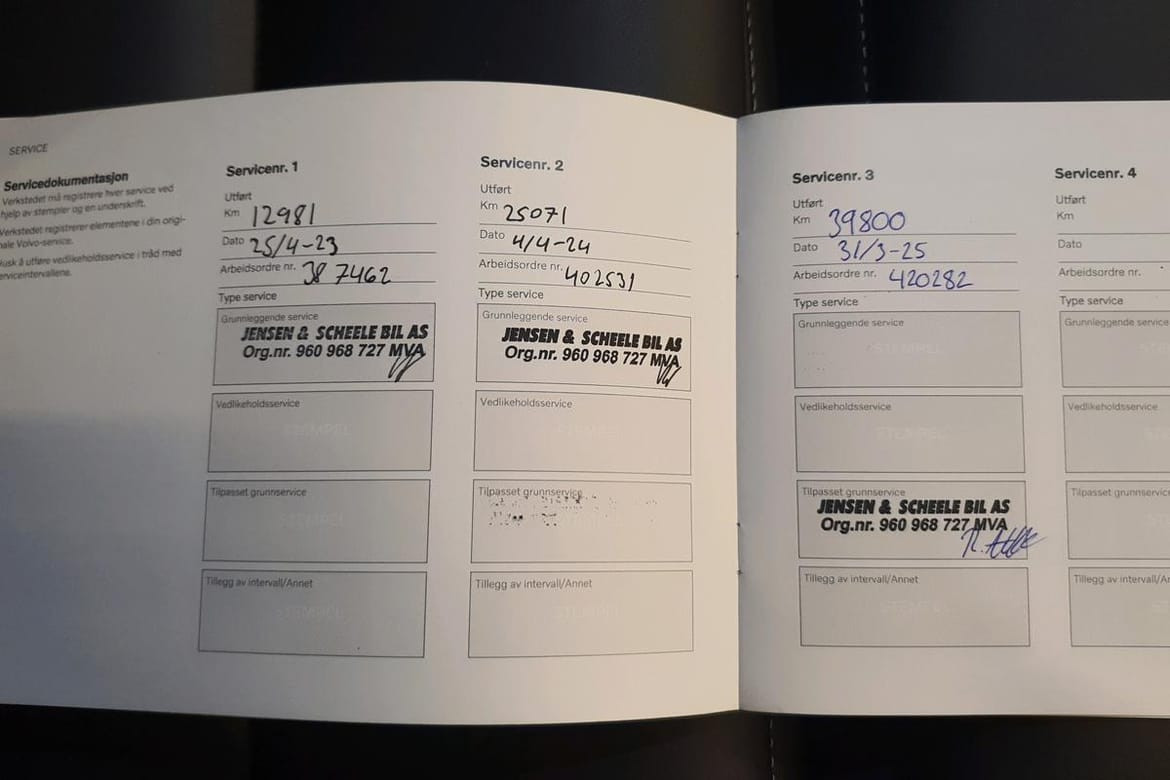 SERVICE
Servicedokumentasjon
Verkstedet må registrere hver service ved
hjelp av stempler og en underskrift.
Verkstedet registrerer elementene i din origi-
nale Volvo-service.
Husk å utføre vedlikeholdsservice i tråd med
serviceintervallene.
Servicenr. 1
Utført
Km 12981
Dato 25/4-23
Arbeidsordre nr. 387462
Type service
Grunnleggende service
JENSEN & SCHEELE BIL AS
Org.nr. 960 968 727 MVA
Vedlikeholdsservice
STEMPEL
Tilpasset grunnservice
STEMPEL
Tillegg av intervall/Annet
STEMPEL
Servicenr. 2
Utført
Km 25071
Dato 4/4-24
Arbeidsordre nr. 402531
Type service
Grunnleggende service
JENSEN & SCHEELE BIL AS
Org.nr. 960 968 727 MVA
Vedlikeholdsservice
STEMPEL
Tilpasset grunnservice
Tillegg av intervall/Annet
STEMPEL
Servicenr. 3
Utført
Km 39800
Dato 31/3-25
Arbeidsordre nr. 420282
Type service
Grunnleggende service
STEMPEL
Vedlikeholdsservice
STEMPEL
Tilpasset grunnservice
JENSEN & SCHEELE BIL AS
Org.nr. 960 968 727 MVA
Tillegg av intervall/Annet
STEMPEL
Servicenr. 4
Utført
Km
Dato
Arbeidsordre nr.
Type service
Grunnleggende service
Vedlikeholdsservice
Tilpasset grunnservice
Tillegg av intervall/An